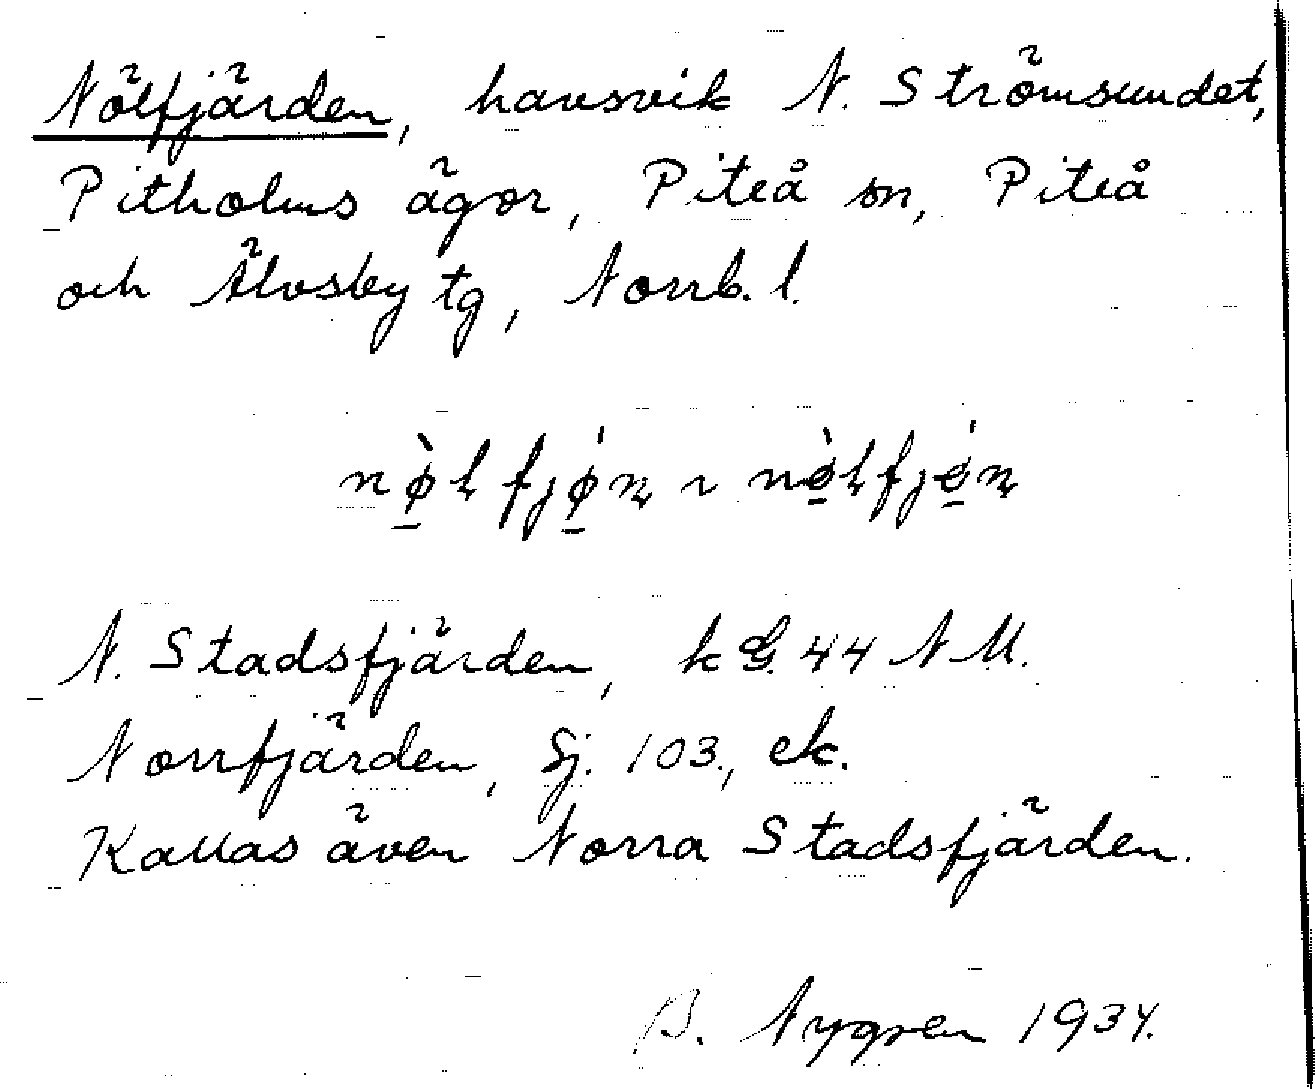 Nölfjärden, havsvik N. Strömsundet,
Pitholms ägor, Piteå sn, Piteå
och Älvsby tg, Norrb. l.
N. Stadsfjärden, k G. 44 NU.
Norrfjärden, Sj. 103, ek.
Kallas även Norra Stadsfjärden.
B. Nygren 1934.